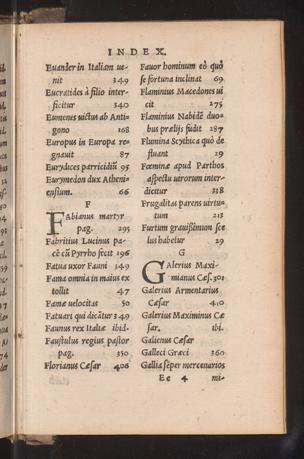 INDEX.
Euander in Italiam ue-
nit 349
Eucratides à filio inter-
ficitur 340
Eumenus uictus ab Anti-
gono 168
Europus in Europa re-
gnauit 87
Eurydices parricidiũ 95
Eurymedon dux Atheni-
ensium. 66
F
Fabianus martyr
pag. 295
Fabritius Lucinus pa-
cē cũ Pyrrho fecit 196
Fatua uxor Fauni 349
Fama omnia in maius ex
tollit 47
Famæ uelocitas 50
Fatuari qui dicãtur 349
Faunus rex Italiæ ibid.
Faustulus regius pastor
pag. 350
Florianus Cæsar 406
Fauor hominum eò quò
se fortuna inclinat 69
Flaminius Macedones ui
cit 275
Flaminius Nabidē duo-
bus prælijs fudit 287
Flumina Scythica quò de
fluant 29
Fœminæ apud Parthos
aspectu uirorum inter-
dicitur 318
Frugalitas parens uirtu-
tum 213
Furtũ grauissimum sce
lus habetur 29
G
Galerius Maxi-
mianus Cæs. 301
Galerius Armentarius
Cæsar 410
Galerius Maximinus Cæ
sar. ibi.
Galienus Cæsar
Galleci Græci 360
Gallia semper mercenarios
Ee 4 mi-